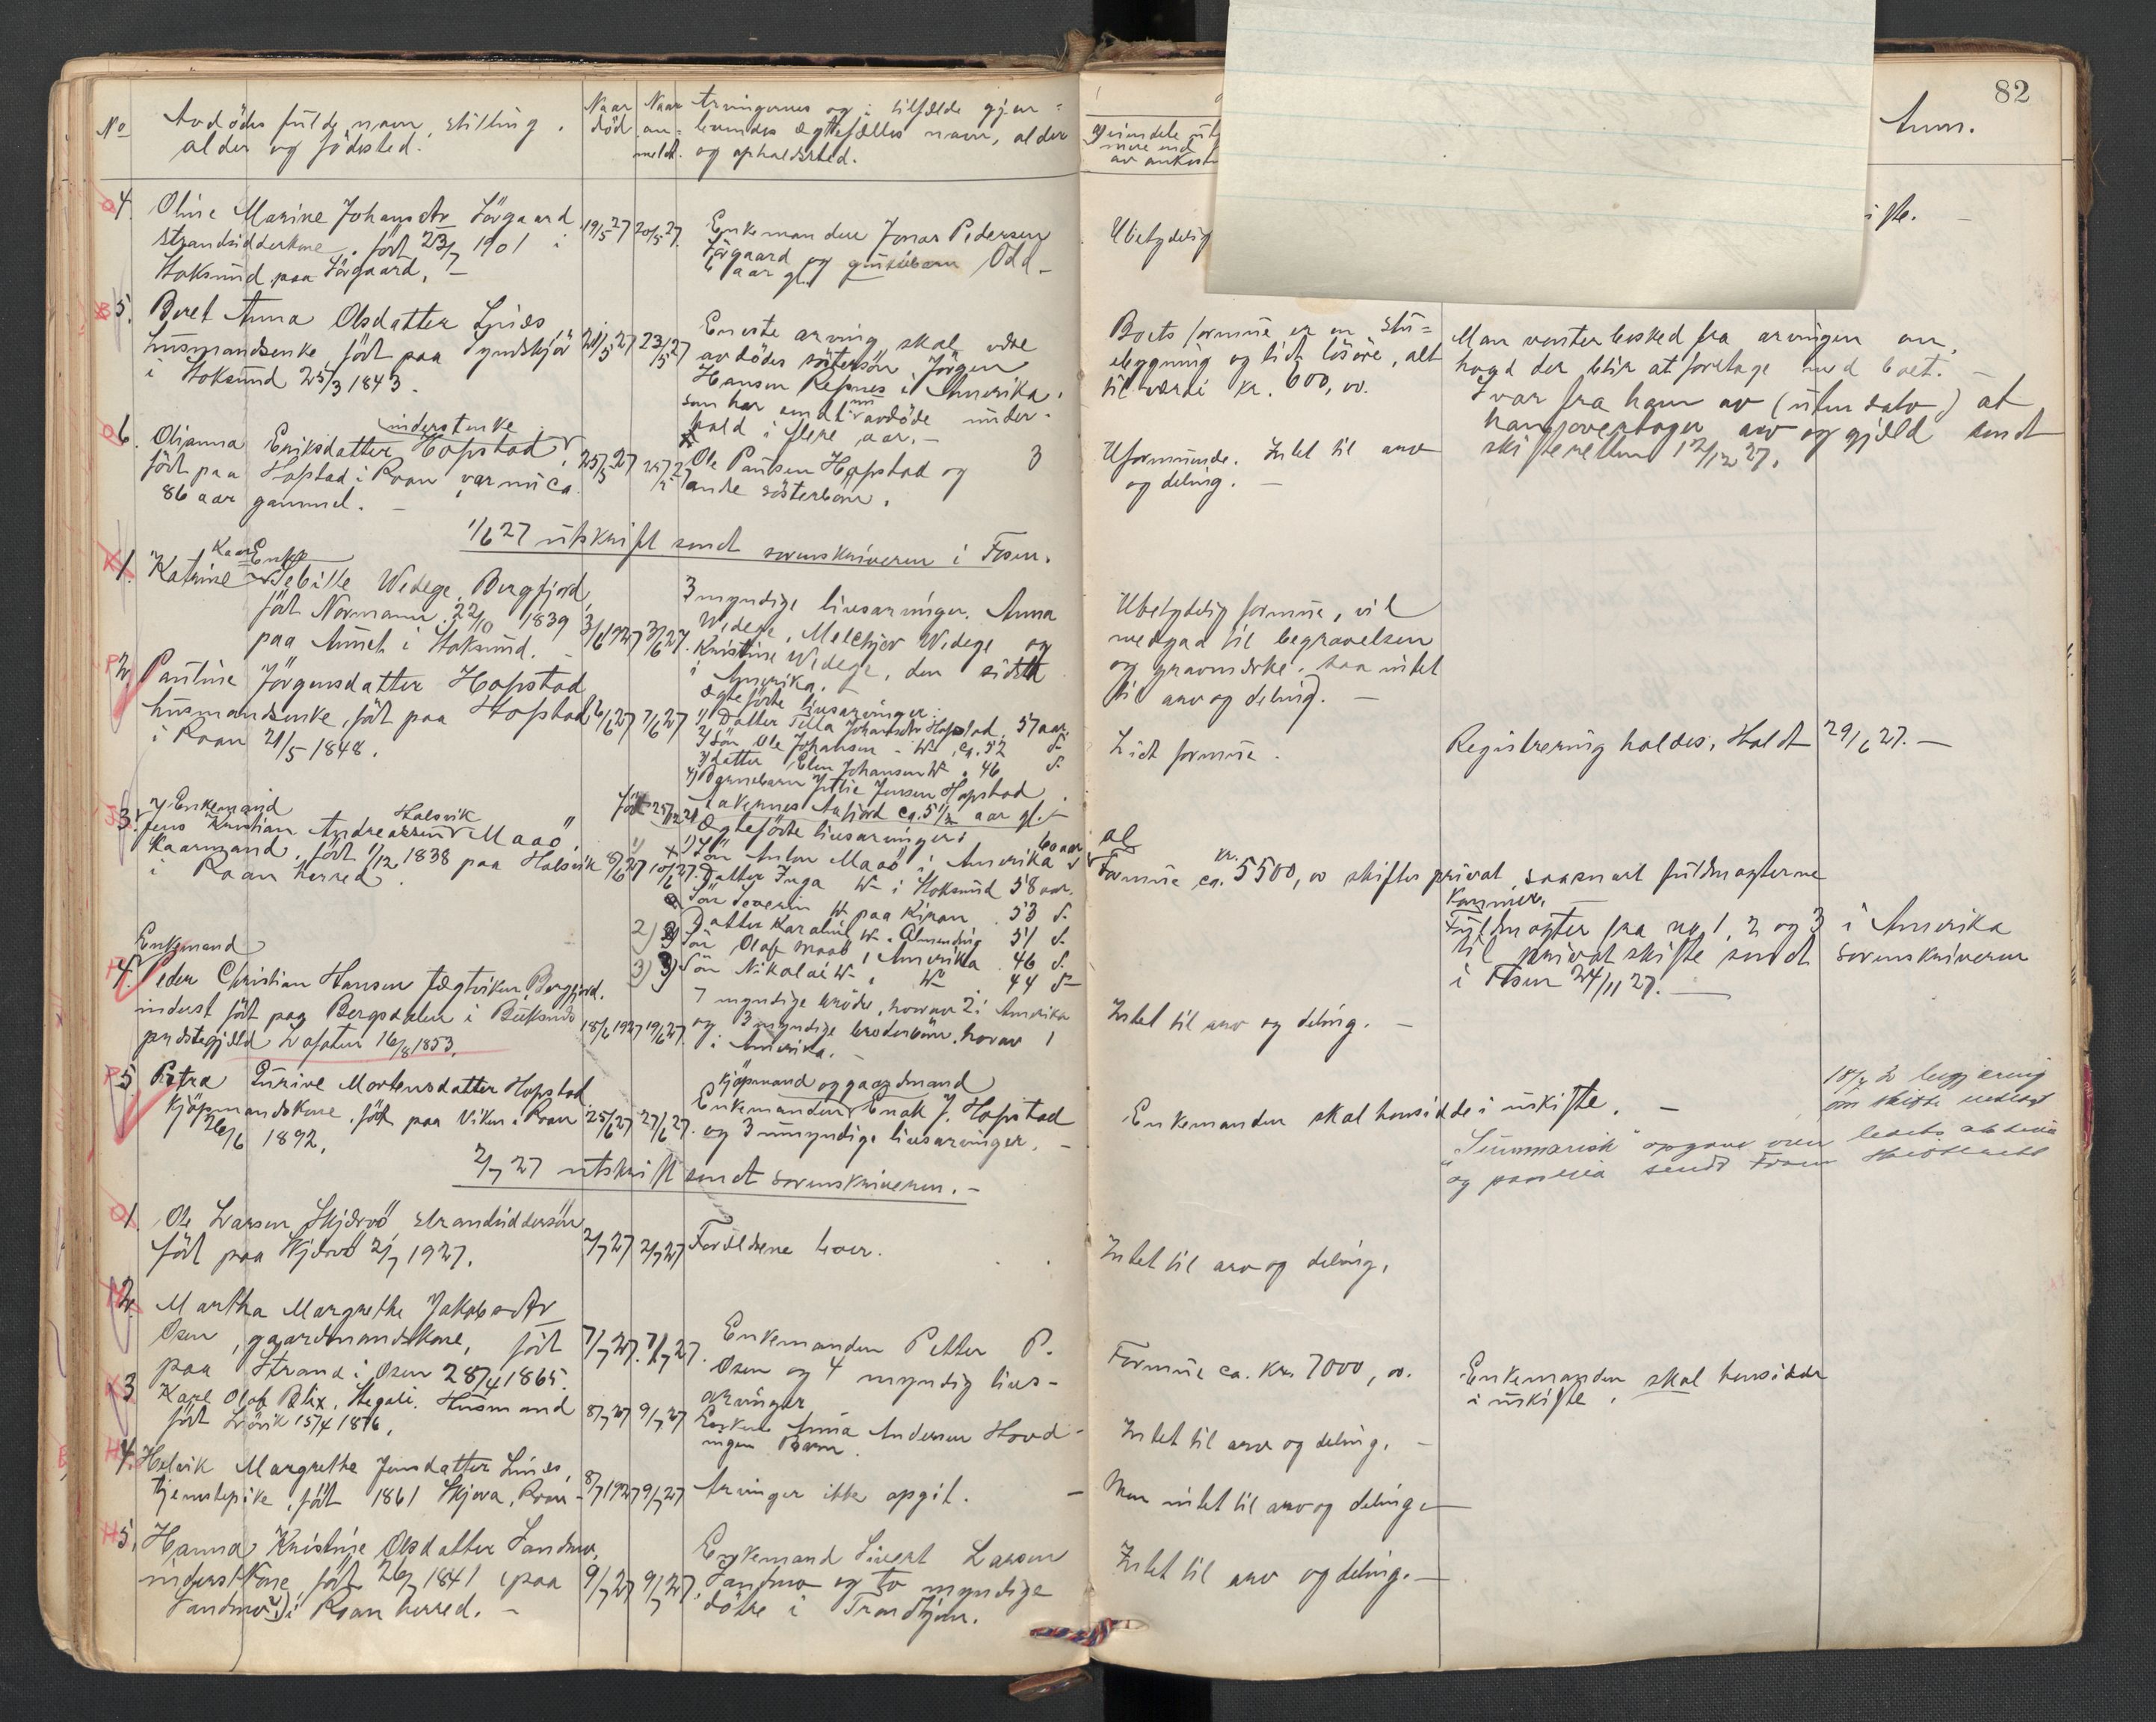 82
No
Avdödes fulde navn, stilling,
alder og födested.
Naar
död
Naar
an-
meldt.
Arvingernes og i tilfælde gjen-
levendes egtefælles navn, alder
og opholdssted.
Anm.
4.
Oline Marine Johansdtr Sörgaard
strandsidderkone, födt 23/7 1901 i
Stoksund paa Sörgaard. –
19/5 27
20/5 27.
Enkemanden Jonas Pedersen
Sörgaard og Odd
6 aar gl.
Ubetydelig
5.
Beret Anna Olsdatter
husmandsenke, födt paa
i Stoksund 25/3 1843.
21/5 27
23/5 27
Eneste arving skal være
avdödes söstersön, Jörgen
Hansen Refsnes i Amerika,
som har sendt nu avdöde under-
hold i flere aar. –
Boets formue er en stu-
ebygning og lidt lösöre, alt
til værdi kr. 600,00.
Man venter besked fra arvingen om,
hvad der blir at foretage med boet. –
Svar fra ham av (uten dato) at
han overtager arv og gjæld sendt
skifteretten 12/12 27.
6.
inderstenke
Olianna Eriksdatter Hopstad,
födt paa Hopstad i Roan var nu ca.
86 aar gammel. –
25/5 27
Ole Paulsen Hopstad og 3
andre sösterbörn.
Uformuende. Intet til arv
og deling. –
1/6 27 utskrift sendt sorenskriveren i Fosen.
1.
Kaarenke
Katrine Sebille Wedege, Bergfjord,
födt Normann 22/10 1839
paa Annet i Stoksund. –
3/6 1927
3/6 27.
3 myndige livsarvinger. Anna
Wedege, Melchjor Wedege og
Kristine Wedege, den sidste
i Amerika. –
Ubetydelig formue, vil
medgaa til begravelsen
og gravmerke, saa intet
til arv og deling. –
2.
Pauline Jörgensdatter Hopstad
husmandsenke, födt paa Hopstad
i Roan 21/5 1848.
6/6 27
7/6 27
Egtefödte livsarvinger:
1) Datter Tella Johansdtr Hopstad, 57 aar.
2) Sön Ole Johansen – W– , ca. 52
3) Datter Elen Johansen W– , 46
4) Jensen Hopstad
födt
ca. 5 1/2 aar gl. –
Lidt formue.
Registrering holdes. Holdt 29/6 27. –
3.
Enkemand
Jens Kristian Andreassen Halsvik Maaö,
Kaarmand, födt 1/12 1838 paa Halsvik
i Roan herred.
8/6 27
10/6 27.
Egtefödte livsarvinger:
1) Sön Anton Maaö i Amerika 60 aar
Datter Inga W– i Stoksund 58 aar.
Sön Severin W– paa Kiran 53
Datter Karoline W– Almenning 51
2) Sön Olaf Maaö i Amerika 46
3) Sön Nikolai W– , W– 44
Formue ca. kr. 5500,00 skiftes privat, saasnart fuldmagterne
kommer. –
Fuldmagter fra no 1, 2 og 3 i Amerika
til privat skifte sendt sorenskriveren
i Fosen 24/11 27. –
4.
Enkemand
Peder Christian Hansen Jægtviken, Bergfjord.
inderst födt paa Bergsdalen i Buksnes
prestegjæld Lofoten 16/8 1853.
18/6 1927
19/6 27.
7 myndige brödre, hvorav 2 i Amerika
og 3 myndige broderbörn, hvorav 1
i Amerika. –
Intet til arv og deling. –
5.
Petra Laurine Mortensdatter Hopstad
Kjöpmandskone, födt paa Viken i Roan
26/6 1892.
25/6 27
27/6 27.
Kjöpmand og gaardmand
Enkemanden Enok J. Hopstad
og 3 umyndige livsarvinger. –
Enkemanden skal hensidde i uskifte. –
begjæring
om skifte
"Summarisk" opgave over boets aktiva
og passiva sendt Fosen skifterett
2/7 27 utskrift sendt sorenskriveren. –
1.
Ole Larsen Skjervö, strandsiddersön
födt paa Skjervö 2/7 1927.
2/7 27
2/7 27
Forældrene lever.
Intet til arv og deling.
2.
Martha Margrethe Jakobsdtr
Osen, gaardmandskone, födt
paa Strand i Osen 28/4 1865.
7/7 27.
7/7 27.
Enkemanden Petter P.
Osen og 4 myndig livs-
arvinger
Formue ca. Kr. 7000,00.
Enkemanden skal hensidde
i uskifte.
3
Karl Olaf Blix, Husmand
födt 15/4 1876.
8/7 27
9/7 27
Enken Anna Andersen Hovd
ingen Barn.
Intet til arv og deling. –
4.
Helvik Margrethe Jensdatter
tjenstepike, födt 1861 Skjora, Roan –
8/7 1927
9/7 27
Arvinger ikke opgit. –
Men intet til arv og deling. –
5.
Hanna Kristine Olsdatter Sandmo,
inderstkone, födt 26/7 1841 (paa
Sandmo?) i Roan herred. –
9/7 27
9/7 27.
Enkemand Sivert Larsen
Sandmo og to myndige
dötre i Trondhjem.
Intet til arv og deling. –